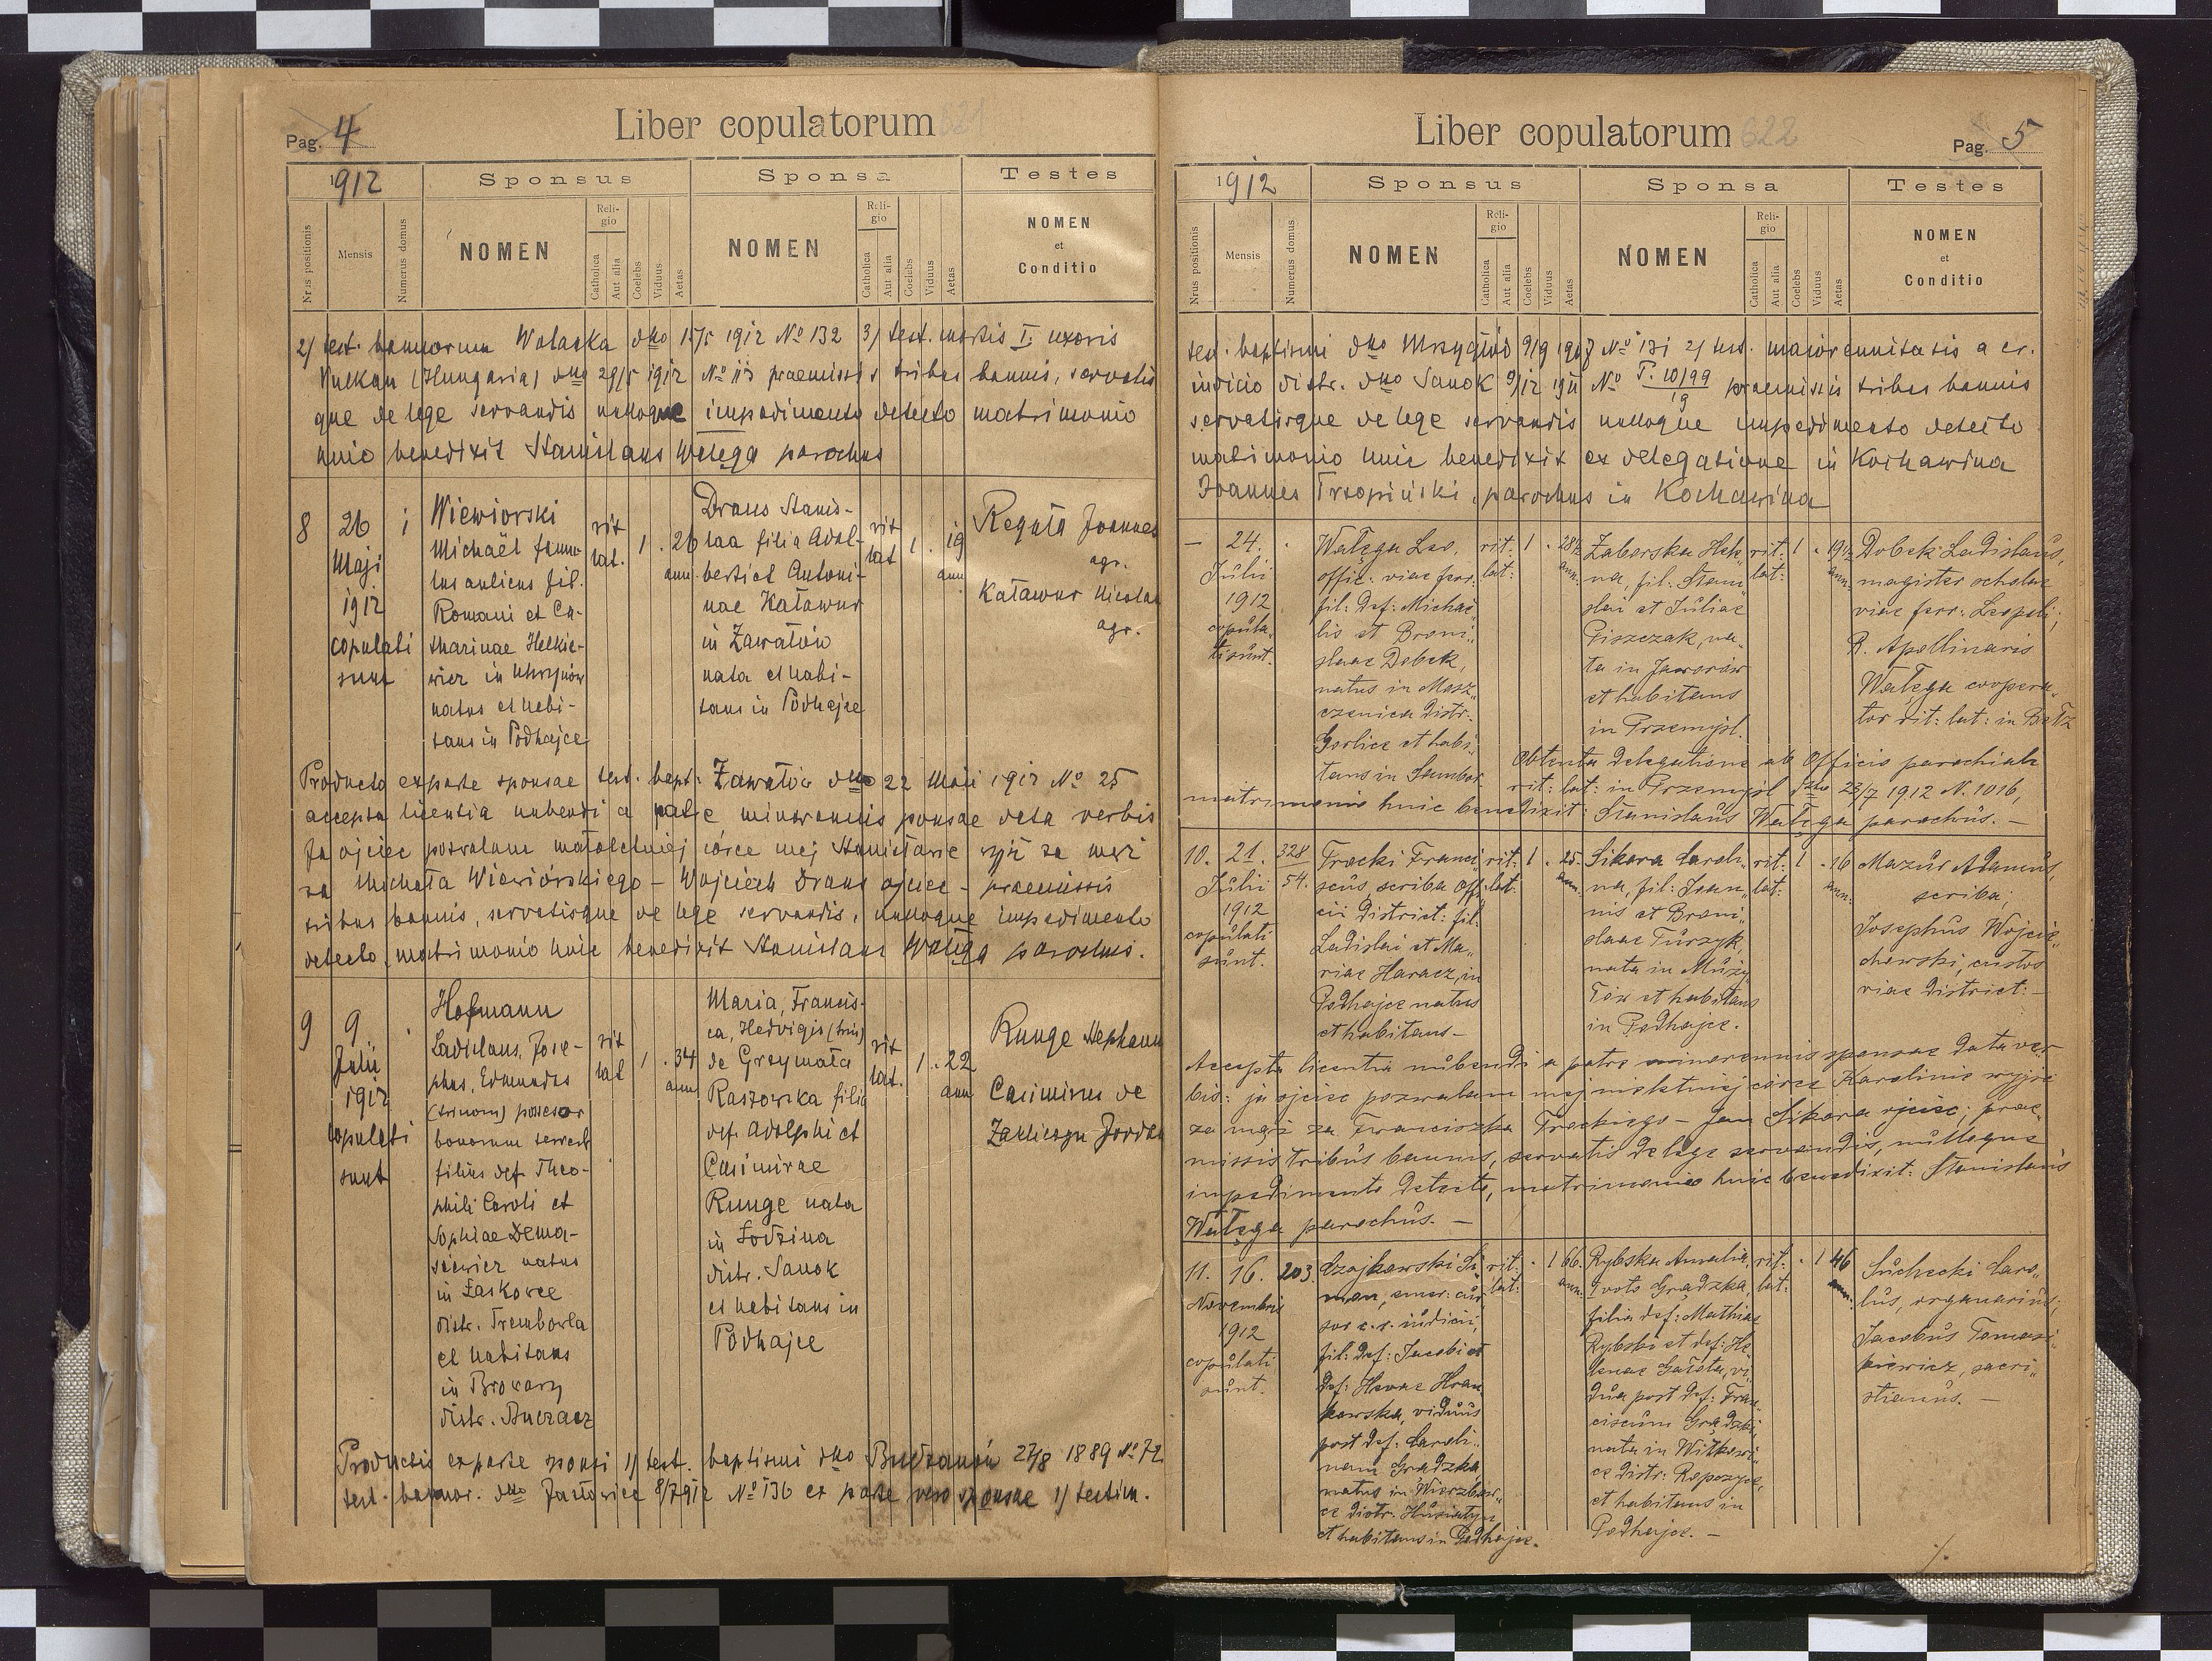 Pag. 4
Liber copulatorum 621
1912
Sponsus
Sponsa
Testes
Nrus positionis
Mensis
Numerus domus
NOMEN
Religio
Catholica
Aut alia
Coelebs
Viduus
Aetas
NOMEN
Religio
Catholica
Aut alia
Coelebs
Viduus
Aetas
NOMEN
et
Conditio
2/ test. bannorum Wolaska dto 15/5 1912 No 132 3/ test. mortis I. uxoris
Vulkan (Hungaria) dto 29/5 1912 No 113 praemissis tribus bannis, servatis
que de lege servandis nulloque impedimento detecto matrimonio
huic benedixit Stanislaus Wałęga parochus
8
26
Maji
1912
copulati
sunt
1
Wiewiorski
Michaël famu-
lus aulicus fil.
Romani et Ca-
tharinae Helkie-
wicz in Uhrynów
natus et habi-
tans in Podhajce
rit
lat.
1 . 26
ann.
Draus Stanis-
laa filia Adal-
berti et Antoni-
nae Katawur
in Zawałów
nata et habi-
tans in Podhajce
rit
lat
1 . 19
ann
Reguła Joannes
agr.
Katawur Nicolaus
agr.
Producto ex parte sponsae test. bapt. Zawałów dto 22 Maji 1912 No 25
accepta licentia nubendi a patre minorennis sponsae data verbis
Ja ojciec pozwalam małoletniej córce mej Stanisławie wyjść za mąż
za Michała Wiewiórskiego – Wojciech Draus ojciec – praemissis
tribus bannis, servatisque de lege servandis, nulloque impedimento
detecto, matrimonio huic benedixit Stanislaus Wałęga parochus.
9
9
Julii
1912
copulati
sunt
Hofmann
Ladislaus, Jose-
phus, Edmundus
(trinom) possesor
bonorum terrest
filius def. Theo-
phili Caroli et
Sophiae Dema-
siewicz natus
in Laskowce
distr. Trembowla
et habitans
in Browary
distr. Buczacz
rit
lat
1 . 34
ann
Maria, Francis-
ca, Hedvigis (trin)
de Grzymała
Raszowska filia
def. Adolphi et
Casimirae
Runge nata
in Łodzina
distr. Sanok
et habitans in
Podhajce
rit
lat.
1 . 22
ann
Runge Stephanus
Casimirus de
Zakliczyn Jordan
Productis ex parte sponsi 1/ test. baptismi dto Budzanów 27/8 1889 No 72
test. bannor. dto Jazłowice 8/7 912 No 136 ex parte vero sponsae 1/ testim.
Liber copulatorum 622
Pag. 5
1912
Sponsus
Sponsa
Testes
Nrus positionis
Mensis
Numerus domus
NOMEN
Religio
Catholica
Aut alia
Coelebs
Viduus
Aetas
NOMEN
Religio
Catholica
Aut alia
Coelebs
Viduus
Aetas
NOMEN
et
Conditio
test. baptismi dto Mrzygłód 9/9 1907 No 131 2/ test. maiorennitatis a cr.
iudicio distr. dto Sanok 9/12 1911 No P. 10/99/19 praemissis tribus bannis
servatisque de lege servandis nulloque impedimento detecto
matrimonio huic benedixit ex delegatione in Kochawina
Joannes Trzopiński, parochus in Kochawina
—
24.
Julii
1912
copula-
ti sunt.
Wałęga Leo,
offic. viae ferr.
fil: def: Michaë-
lis et Broni-
slaae Dobek,
natus in Mosz-
czenica distr.
Gorlice et habi-
tans in Sambor
rit:
lat:
1 . 28½
ann.
Zaborska Hele-
na, fil: Stani-
slai et Juliae
Piszczak, na-
ta in Jaworów
et habitans
in Przemyśl.
rit:
lat:
1 . 19½
ann.
Dobek Ladislaus,
magister scholae
viae ferr: Leopoli;
R. Apollinaris
Wałęga coopera-
tor rit: lat: in Bełz
Obtenta delegatione ab Officio parochiali
rit: lat: in Przemyśl dto 23/7 1912 N. 1016,
matrimonio huic benedixit: Stanislaus Wałęga parochus. —
10.
21.
Julii
1912
copulati
sunt.
328
54.
Trecki Franci-
scus, scriba Offi-
cii district: fil:
Ladislai et Ma-
riae Haracz, in
Podhajce natus
et habitans —
rit:
lat:
1 . 25.
ann.
Sikora Caroli-
na, fil: Joan-
nis et Broni-
slaae Turzyk,
nata in Muży-
łów et habitans
in Podhajce.
rit:
lat:
1 . 16
ann:
Mazur Adamus,
scriba;
Josephus Wojcie-
chowski, custos
viae district: —
Accepta licentia nubendi a patre minorennis sponsae data ver-
bis: ja ojciec pozwalam mej nieletniej córce Karolinie wyjść
za mąż za Franciszka Treckiego — Jan Sikora ojciec; prae-
missis tribus bannis, servatis de lege servandis, nulloque
impedimento detecto, matrimonio huic benedixit: Stanislaus
Wałęga parochus. —
11.
16.
Novembris
1912
copulati
sunt.
203.
Czajkowski Si-
mon, emer: cur-
sor c. r. iudicii,
fil: def: Jacobi et
def: Hevae Hran-
kowska, viduus
post def: Caroli-
nam Grądzka,
natus in Wierzbow-
ce distr. Husiatyn
et habitans in Podhajce.
rit:
lat:
. 1 66.
ann:
Rybska Amalia,
I voto Grądzka,
filia def: Mathiae
Rybski et def: He-
lenae Gałata, vi-
dua post def: Fran-
ciscum Grądzki,
nata in Witkowi-
ce distr: Ropczyce,
et habitans in
Podhajce. —
rit:
lat:
. 1 46
ann.
Suchecki Caro-
lus, organarius;
Jacobus Tomasz-
kiewicz, sacri-
stianus. —